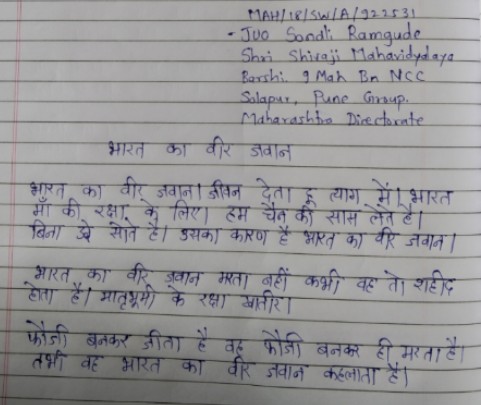 MAH/18/SW/A/922531
- JUO Sonali Ramgude
Shri Shivaji Mahavidyalaya
Barshi. 9 Mah Bn NCC
Solapur, Pune Group.
Maharashtra Directorate
भारत का वीर जवान
भारत का वीर जवान। जीवन देता हू त्याग में। भारत
माँ की रक्षा के लिए। हम चैन की सास लेते है।
बिना डरे सोते है। उसका कारण है भारत का वीर जवान।
भारत का वीर जवान मरता नहीं कभी वह तो शहीद
होता है। मातृभूमी के रक्षा खातीर।
फौजी बनकर जीता है वह फौजी बनकर ही मरता है।
तभी वह भारत का वीर जवान कहलाता है।